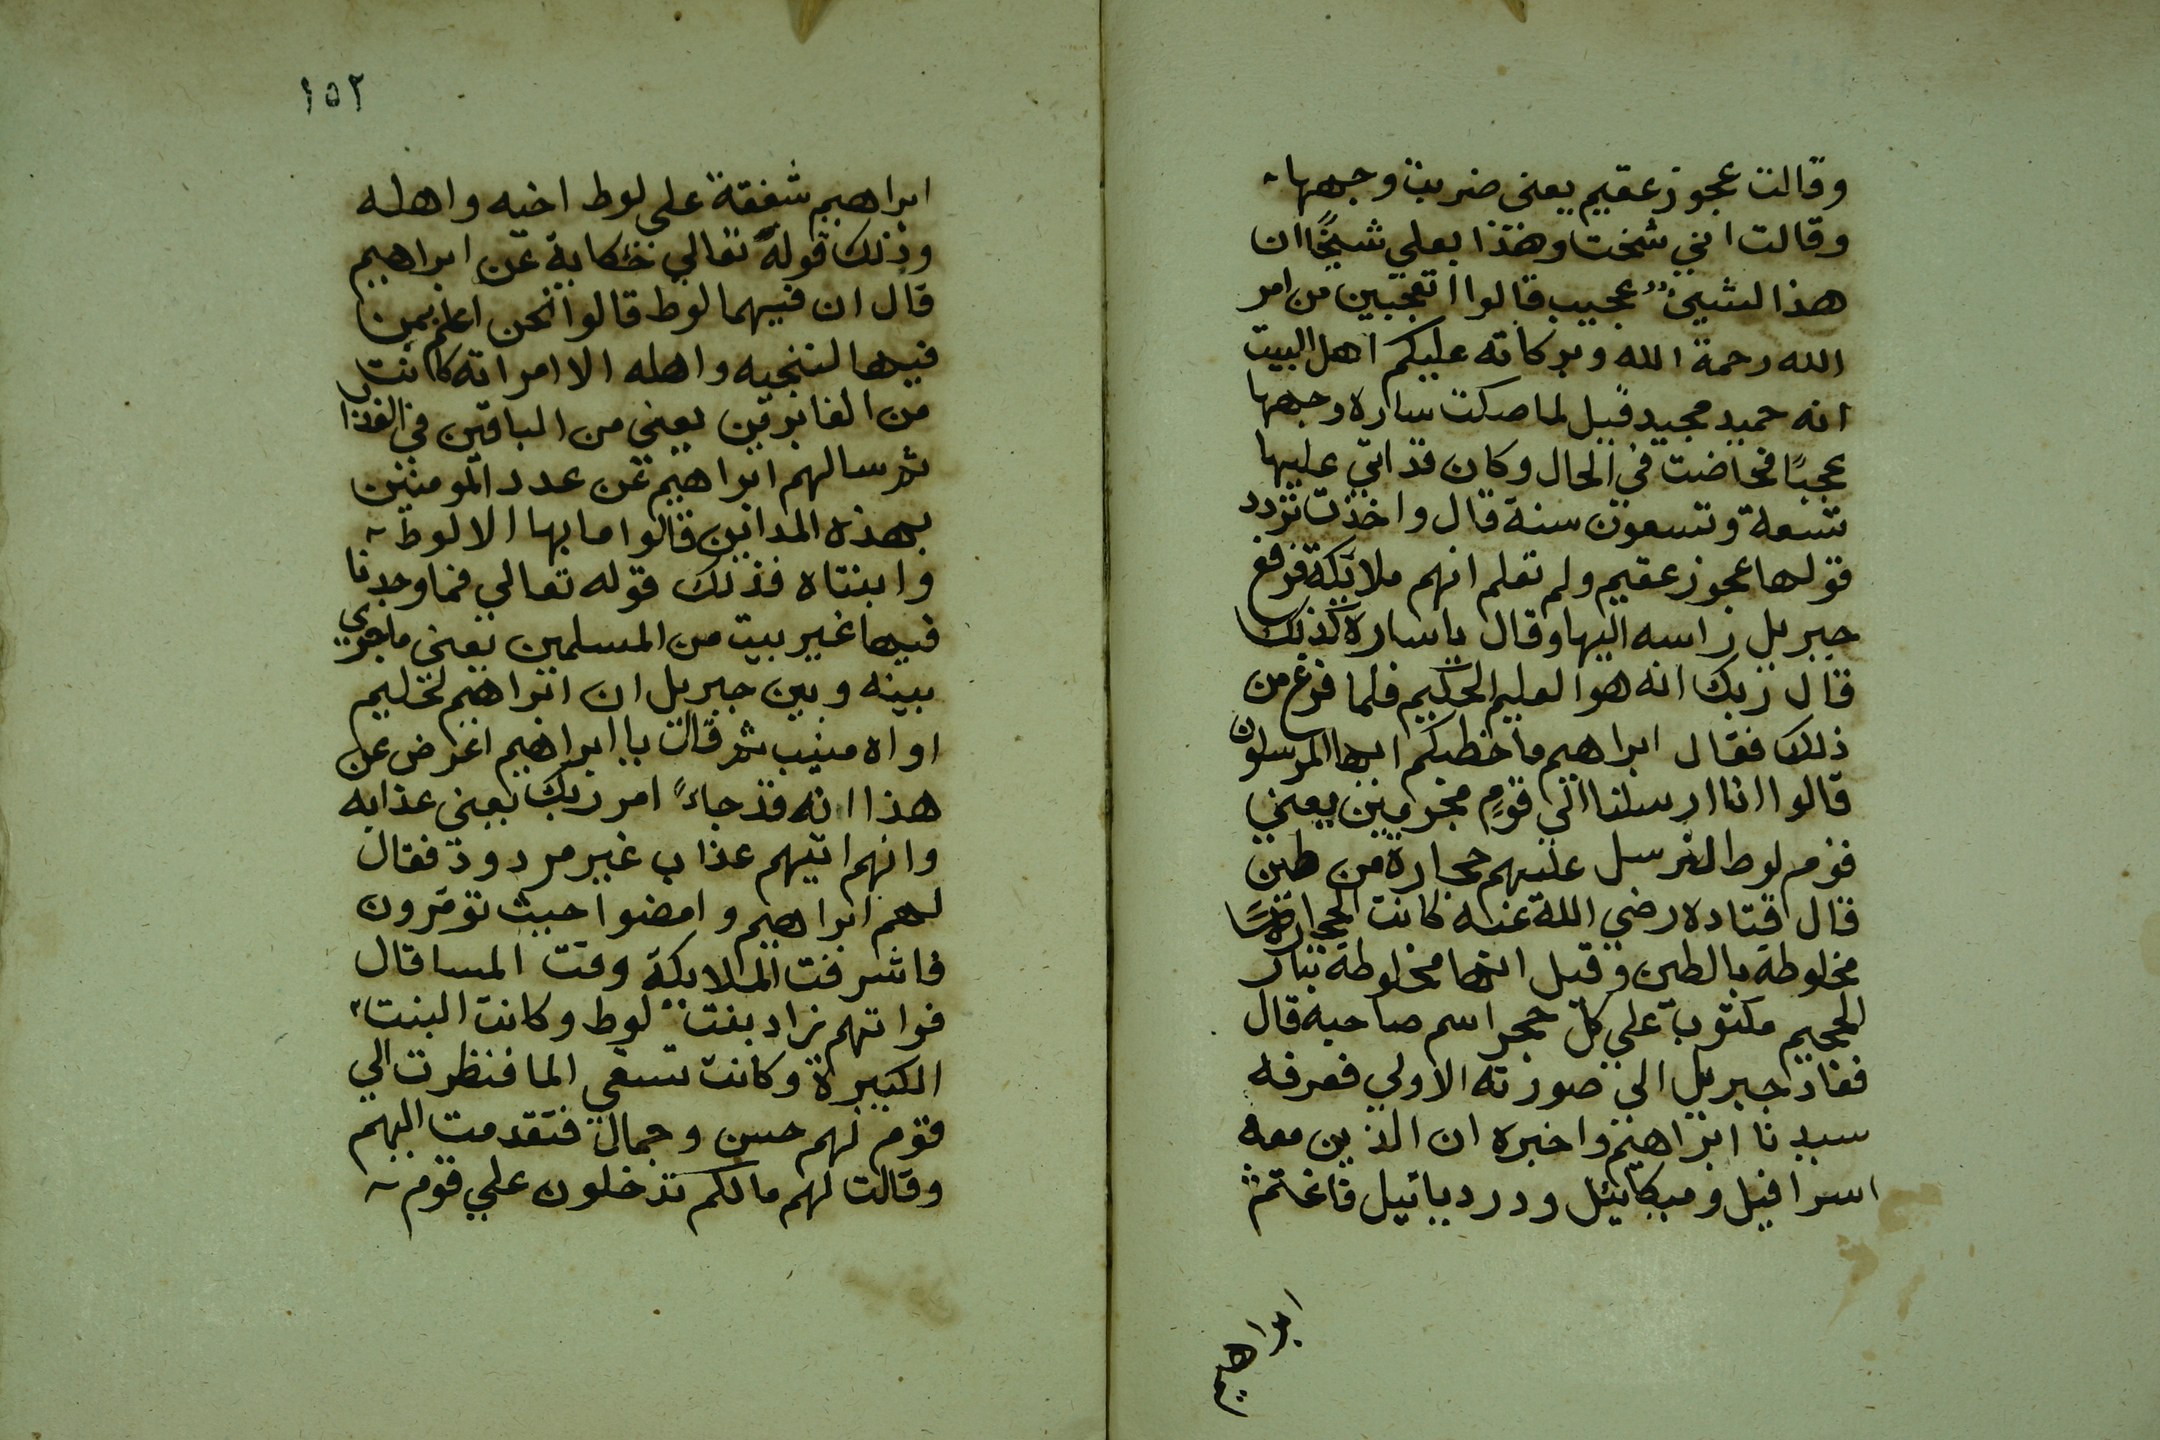 وقالت عجوز عقيم يعنى ضربت وجهها
وقالت انني شخت وهذا بعلي شيخًا ان
هذا لشيئ عجيب قالوا اتعجبين من امر
الله رحمة الله وبركاته عليكم اهل البيت
انه حميد مجيد قيل لما صكت ساره وجهها
عجبًا فحاضت في الحال وكان قد اتي عليها
تسعة وتسعون سنة قال واخذت تردد
قولها عجوز عقيم ولم تعلم انهم ملايكة فرفع
جبريل راسه اليها وقال ياساره كذلك
قال ربك انه هو العليم الحكيم فلما فرغ من
ذلك فقال ابراهيم ما خطبكم ايها المرسلون
قالوا انا ارسلنا الي قومٍ مجرمين يعني
قوم لوط لنرسل عليهم حجارة من طين
قال قتاده رضي الله عنه كانت الحجارة
مخلوطة بالطين وقيل انها مخلوطة بنار
الجحيم مكتوب علي كل حجر اسم صاحبه قال
فعاد جبريل الي صورته الاولي فعرفه
سيدنا ابراهيم واخبره ان الذين معه
اسرافيل وميكائيل ودرديائيل فاغتم
ابراهيم
١٥٢
ابراهيم شفقة على لوط اخيه واهله
وذلك قوله تعالي حكاية عن ابراهيم
قال ان فيها لوط قالوا نحن اعلم بمن
فيها لننجيه واهله الا امراته كانت
من الغابرين يعني من الباقين في العذاب
ثم سالهم ابراهيم عن عدد المومنين
بهذه المداين قالوا ما بها الا لوط
وابنتاه فذلك قوله تعالي فما وجدنا
فيها غير بيت من المسلمين يعني ماجري
بينه وبين جبريل ان ابراهيم لحليم
اواه منيب ثم قالت يا ابراهيم اعرض عن
هذا انه قد جاءً امر ربك يعني عذابه
وانهم اتيهم عذاب غير مردود فقال
لهم ابراهيم وامضوا حيث تومرون
فاشرفت الملايكة وقت المسا قال
فواتهم نراد بنت لوط وكانت البنت
الكبيرة وكانت تسقي الما فنظرت الي
قوم لهم حسن وجمال فتقدمت اليهم
وقالت لهم مالكم تدخلون علي قوم